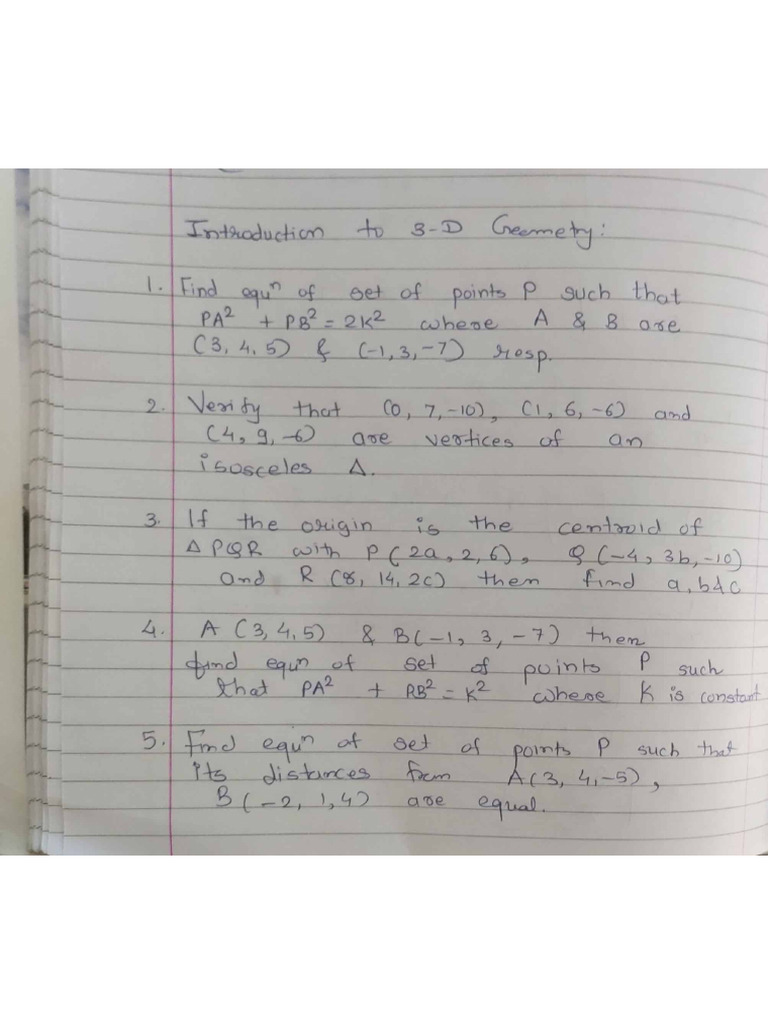 Introduction to 3-D Geometry:
1. Find equⁿ of set of points P such that
PA² + PB² = 2K² where A & B are
(3, 4, 5) & (-1, 3, -7) resp.
2. Verify that (0, 7, -10), (1, 6, -6) and
(4, 9, -6) are vertices of an
isosceles Δ.
3. If the origin is the centroid of
Δ PQR with P(2a, 2, 6), Q(-4, 3b, -10)
and R (8, 14, 2c) then find a, b & c
4. A (3, 4, 5) & B(-1, 3, -7) then
find equⁿ of set of points P such
that PA² + PB² = K² where K is constant
5. Find equⁿ of set of points P such that
its distances from A(3, 4, -5),
B(-2, 1, 4) are equal.